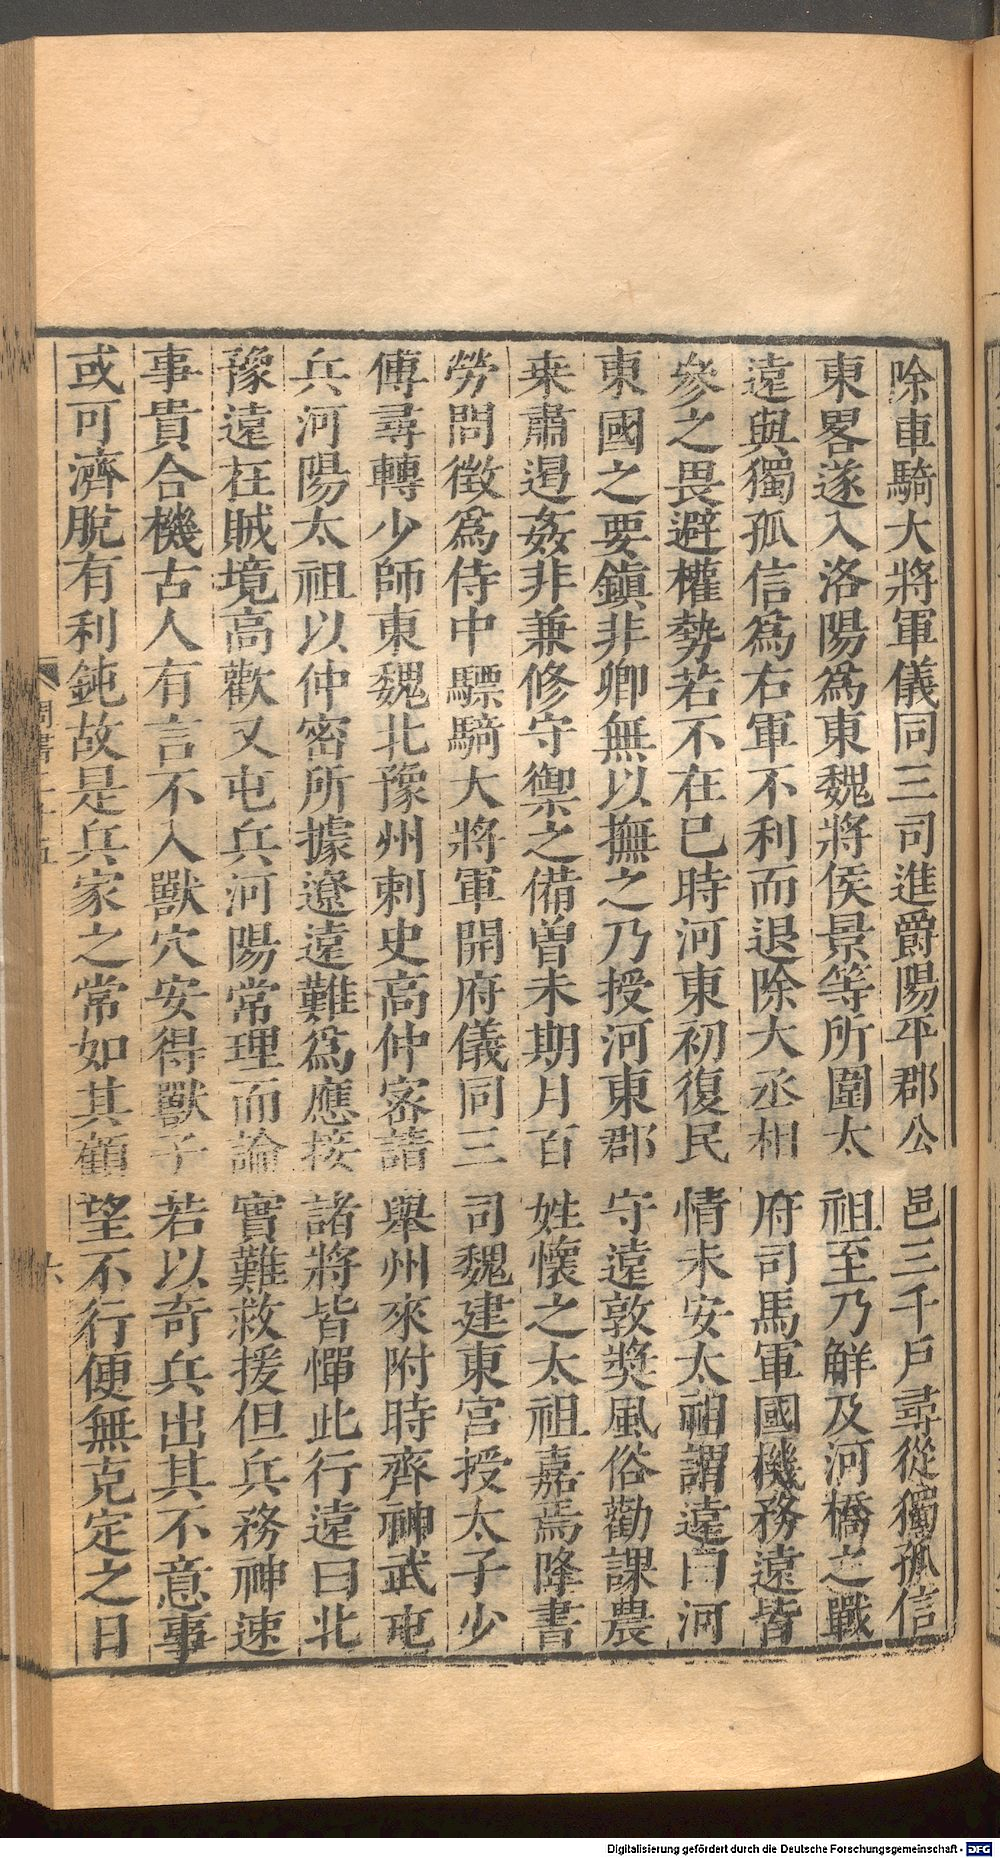 除車騎大將軍儀同三司進爵陽平郡公邑三千戸尋從獨孤信
東畧遂入洛陽爲東魏將侯景等所圍太祖至乃解及河橋之戰
遠與獨孤信爲右軍不利而退除大丞相府司馬軍國機務遠皆
參之畏避權勢若不在已時河東初復民情未安太祖謂遠曰河
東國之要鎮非卿無以撫之乃授河東郡守遠敦奬風俗勸課農
桒肅遏姦非兼修守禦之備曽未期月百姓懷之太祖嘉焉降書
勞問徴爲侍中驃騎大將軍開府儀同三司魏建東宫授太子少
傅尋轉少師東魏北豫州刺史高仲宻請舉州來附時齊神武屯
兵河陽太祖以仲密所據遼遠難爲應接諸將皆憚此行遠曰北
豫遠在賊境高歡又屯兵河陽常理而論實難救援但兵務神速
事貴合機古人有言不入獸穴安得獸子若以奇兵出其不意事
或可濟脫有利鈍故是兵家之常如其顧望不行便無克定之日
周書二十五
六
Digitalisierung gefördert durch die Deutsche Forschungsgemeinschaft - DFG